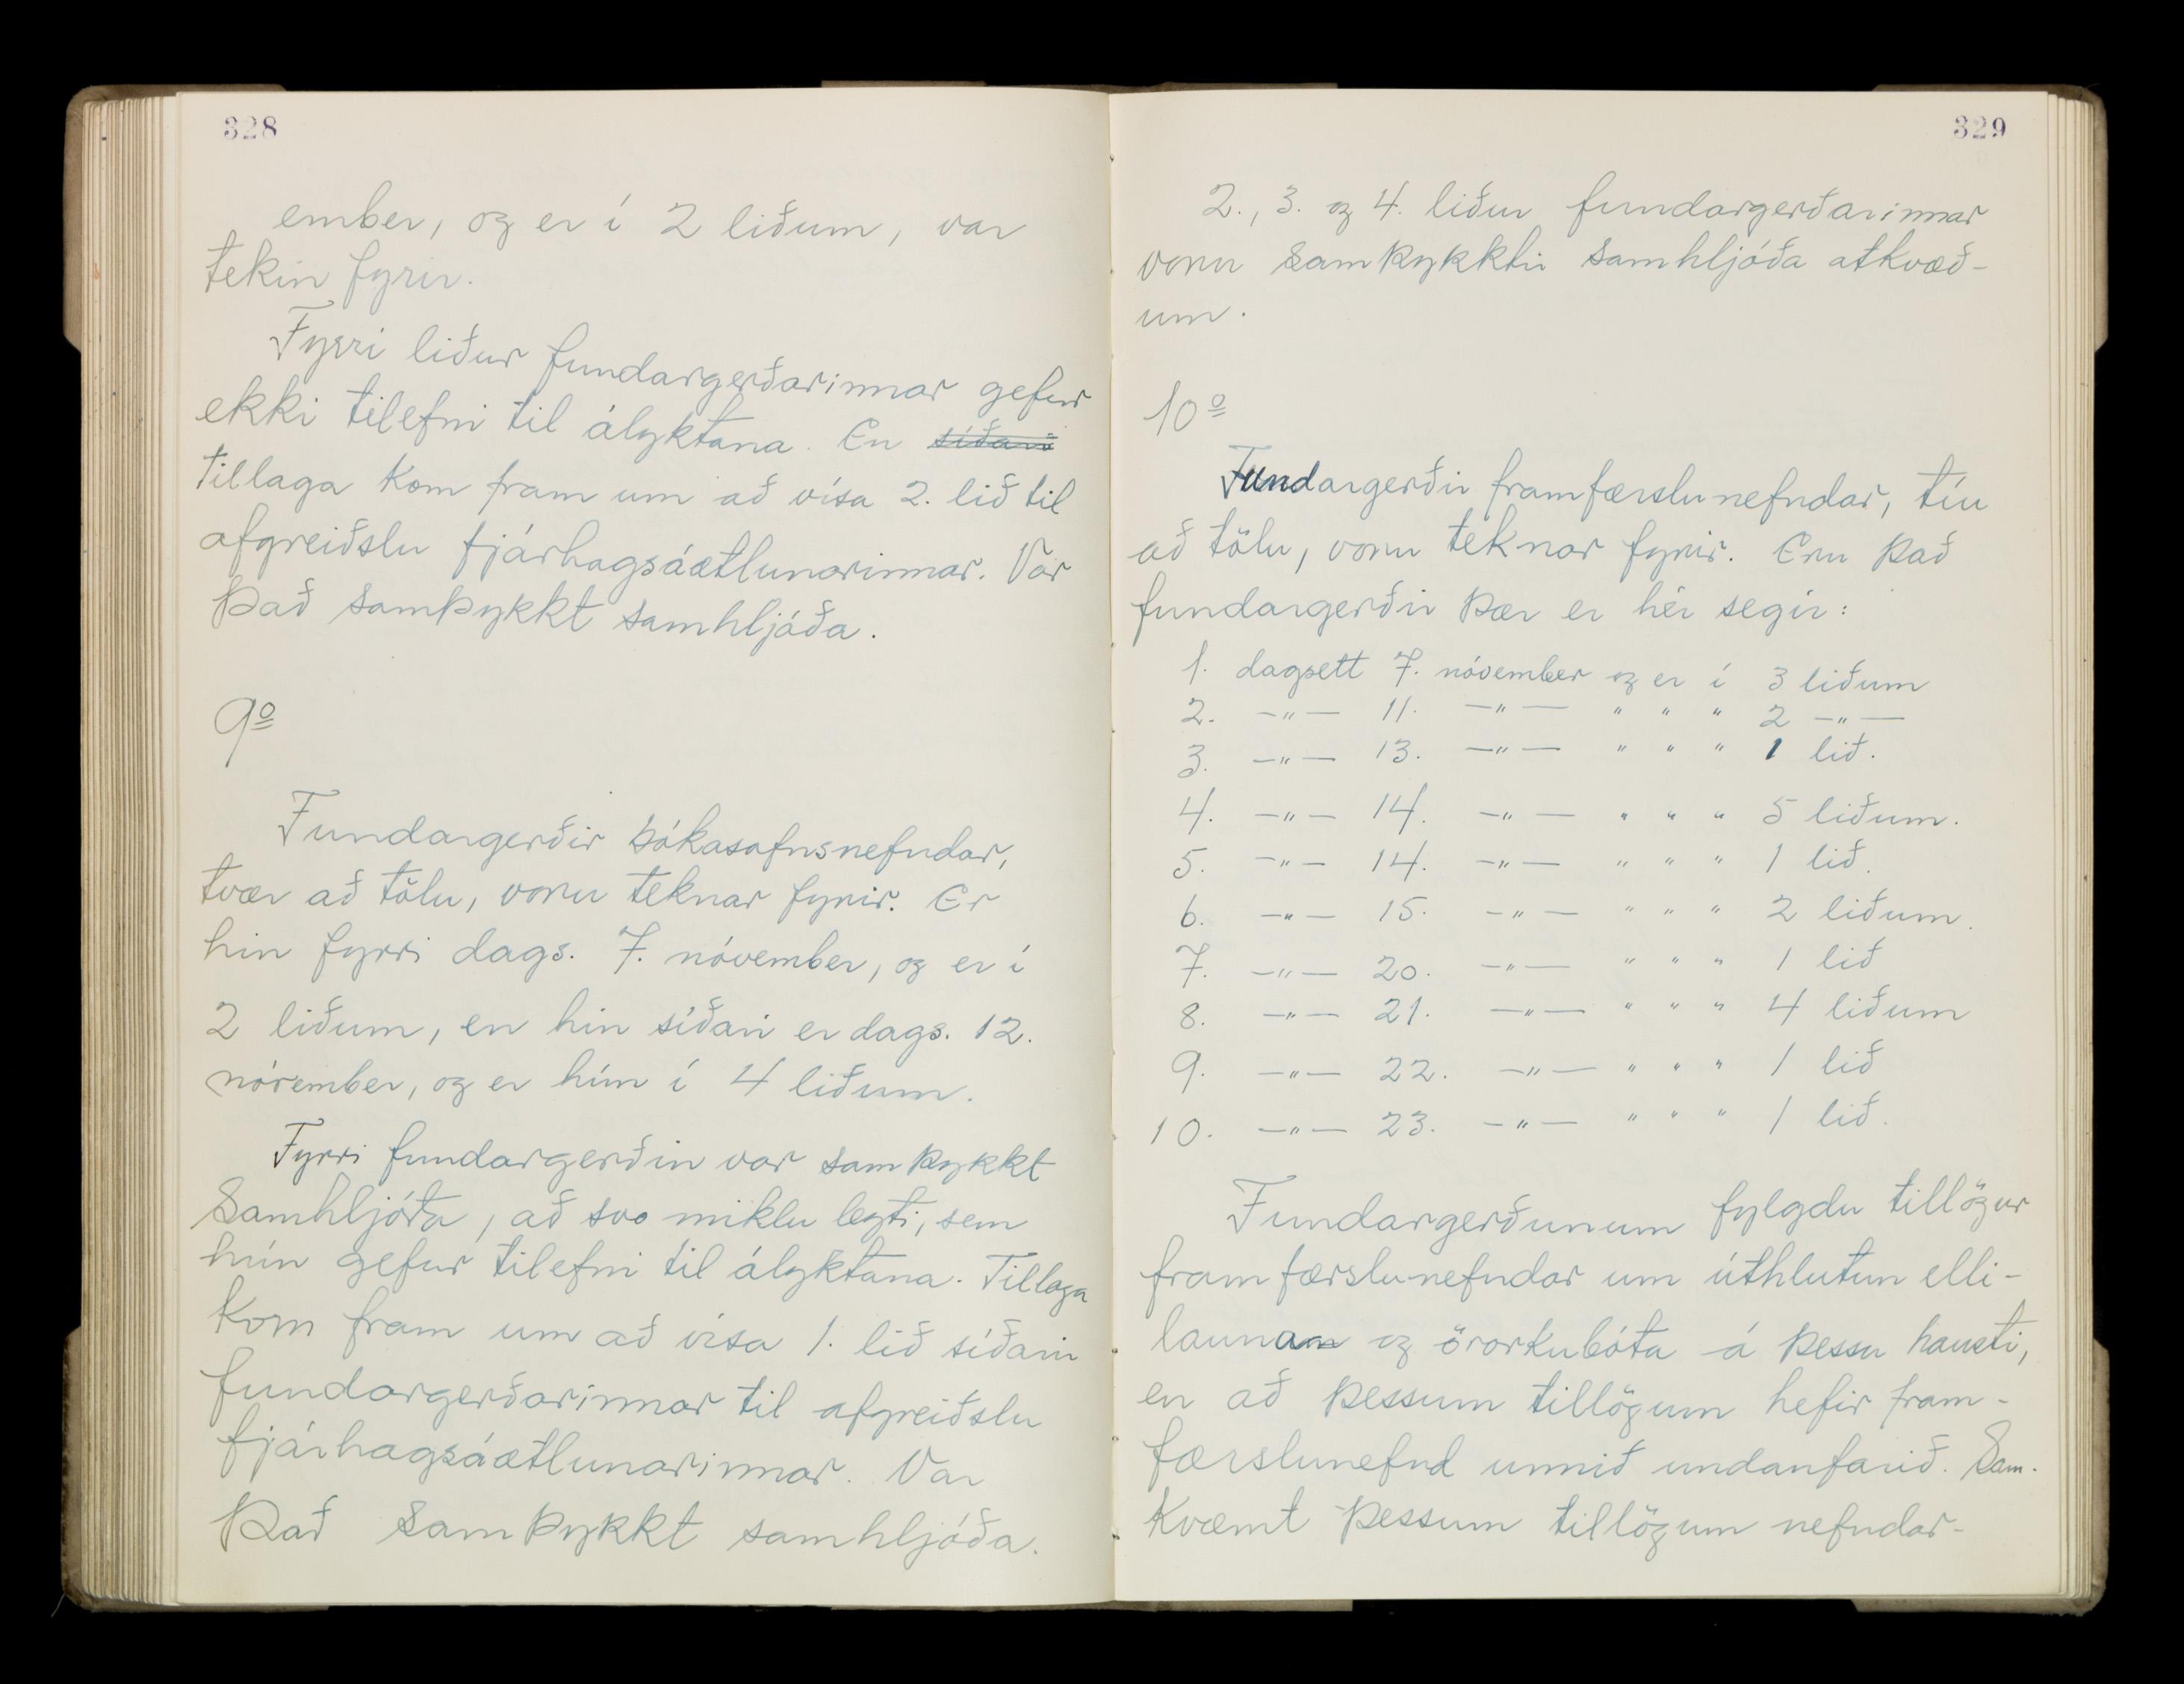 328
ember, og er í 2 liðum, var
tekin fyrir.
Fyrri liður fundargerðarinnar gefur
ekki tilefni til ályktana. En síðari
tillaga kom fram um að vísa 2. lið til
afgreiðslu fjárhagsáætlunarinnar. Var
það samþykkt samhljóða.
9º
Fundargerðir bókasafnsnefndar,
tvær að tölu, voru teknar fyrir. Er
hin fyrri dags. 7. nóvember, og er í
2 liðum, en hin síðari er dags. 12.
nóvember, og er hún í 4 liðum.
Fyrri fundargerðin var samþykkt
samhljóða, að svo miklu leyti, sem
hún gefur tilefni til ályktana. Tillaga
kom fram um að vísa 1. lið síðari
fundargerðarinnar til afgreiðslu
fjárhagsáætlunarinnar. Var
það samþykkt samhljóða.
329
2., 3. og 4. liður fundargerðarinnar
voru samþykktir samhljóða atkvæð-
um.
10º
Fundargerðir framfærslunefndar, tíu
að tölu, voru teknar fyrir. Eru það
fundargerðir þær er hér segir:
1. dagsett 7. nóvember og er í 3 liðum
2. —"— 11. —"— " " " 2 —"—
3. —"— 13. —"— " " " 1 lið.
4. —"— 14. —"— " " " 5 liðum.
5. —"— 14. —"— " " " 1 lið.
6. —"— 15. —"— " " " 2 liðum.
7. —"— 20. —"— " " " 1 lið
8. —"— 21. —"— " " " 4 liðum
9. —"— 22. —"— " " " 1 lið
10. —"— 23. —"— " " " 1 lið.
Fundargerðunum fylgdu tillögur
framfærslunefndar um úthlutun elli-
launa og örorkubóta á þessu hausti,
en að þessum tillögum hefir fram-
færslunefnd unnið undanfarið. Sam-
kvæmt þessum tillögum nefndar-